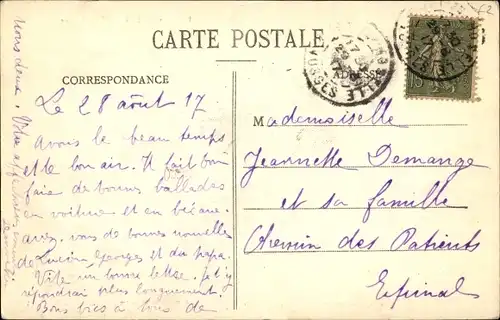 CARTE POSTALE
CORRESPONDANCE
ADRESSE
Le 28 août 17
Avons le beau temps
et le bon air. Il fait bon
faire de bonnes ballades
en voiture et en bécane.
avez vous de bonnes nouvelles
de Lucien Georges et du papa.
Vite un bonne lettre, je t'y
répondrai plus longuement.
Bons bies à tous de
nous deux. Votre
Mademoiselle
Jeannette Demange
et sa famille
Chemin des Patients
Epinal
15